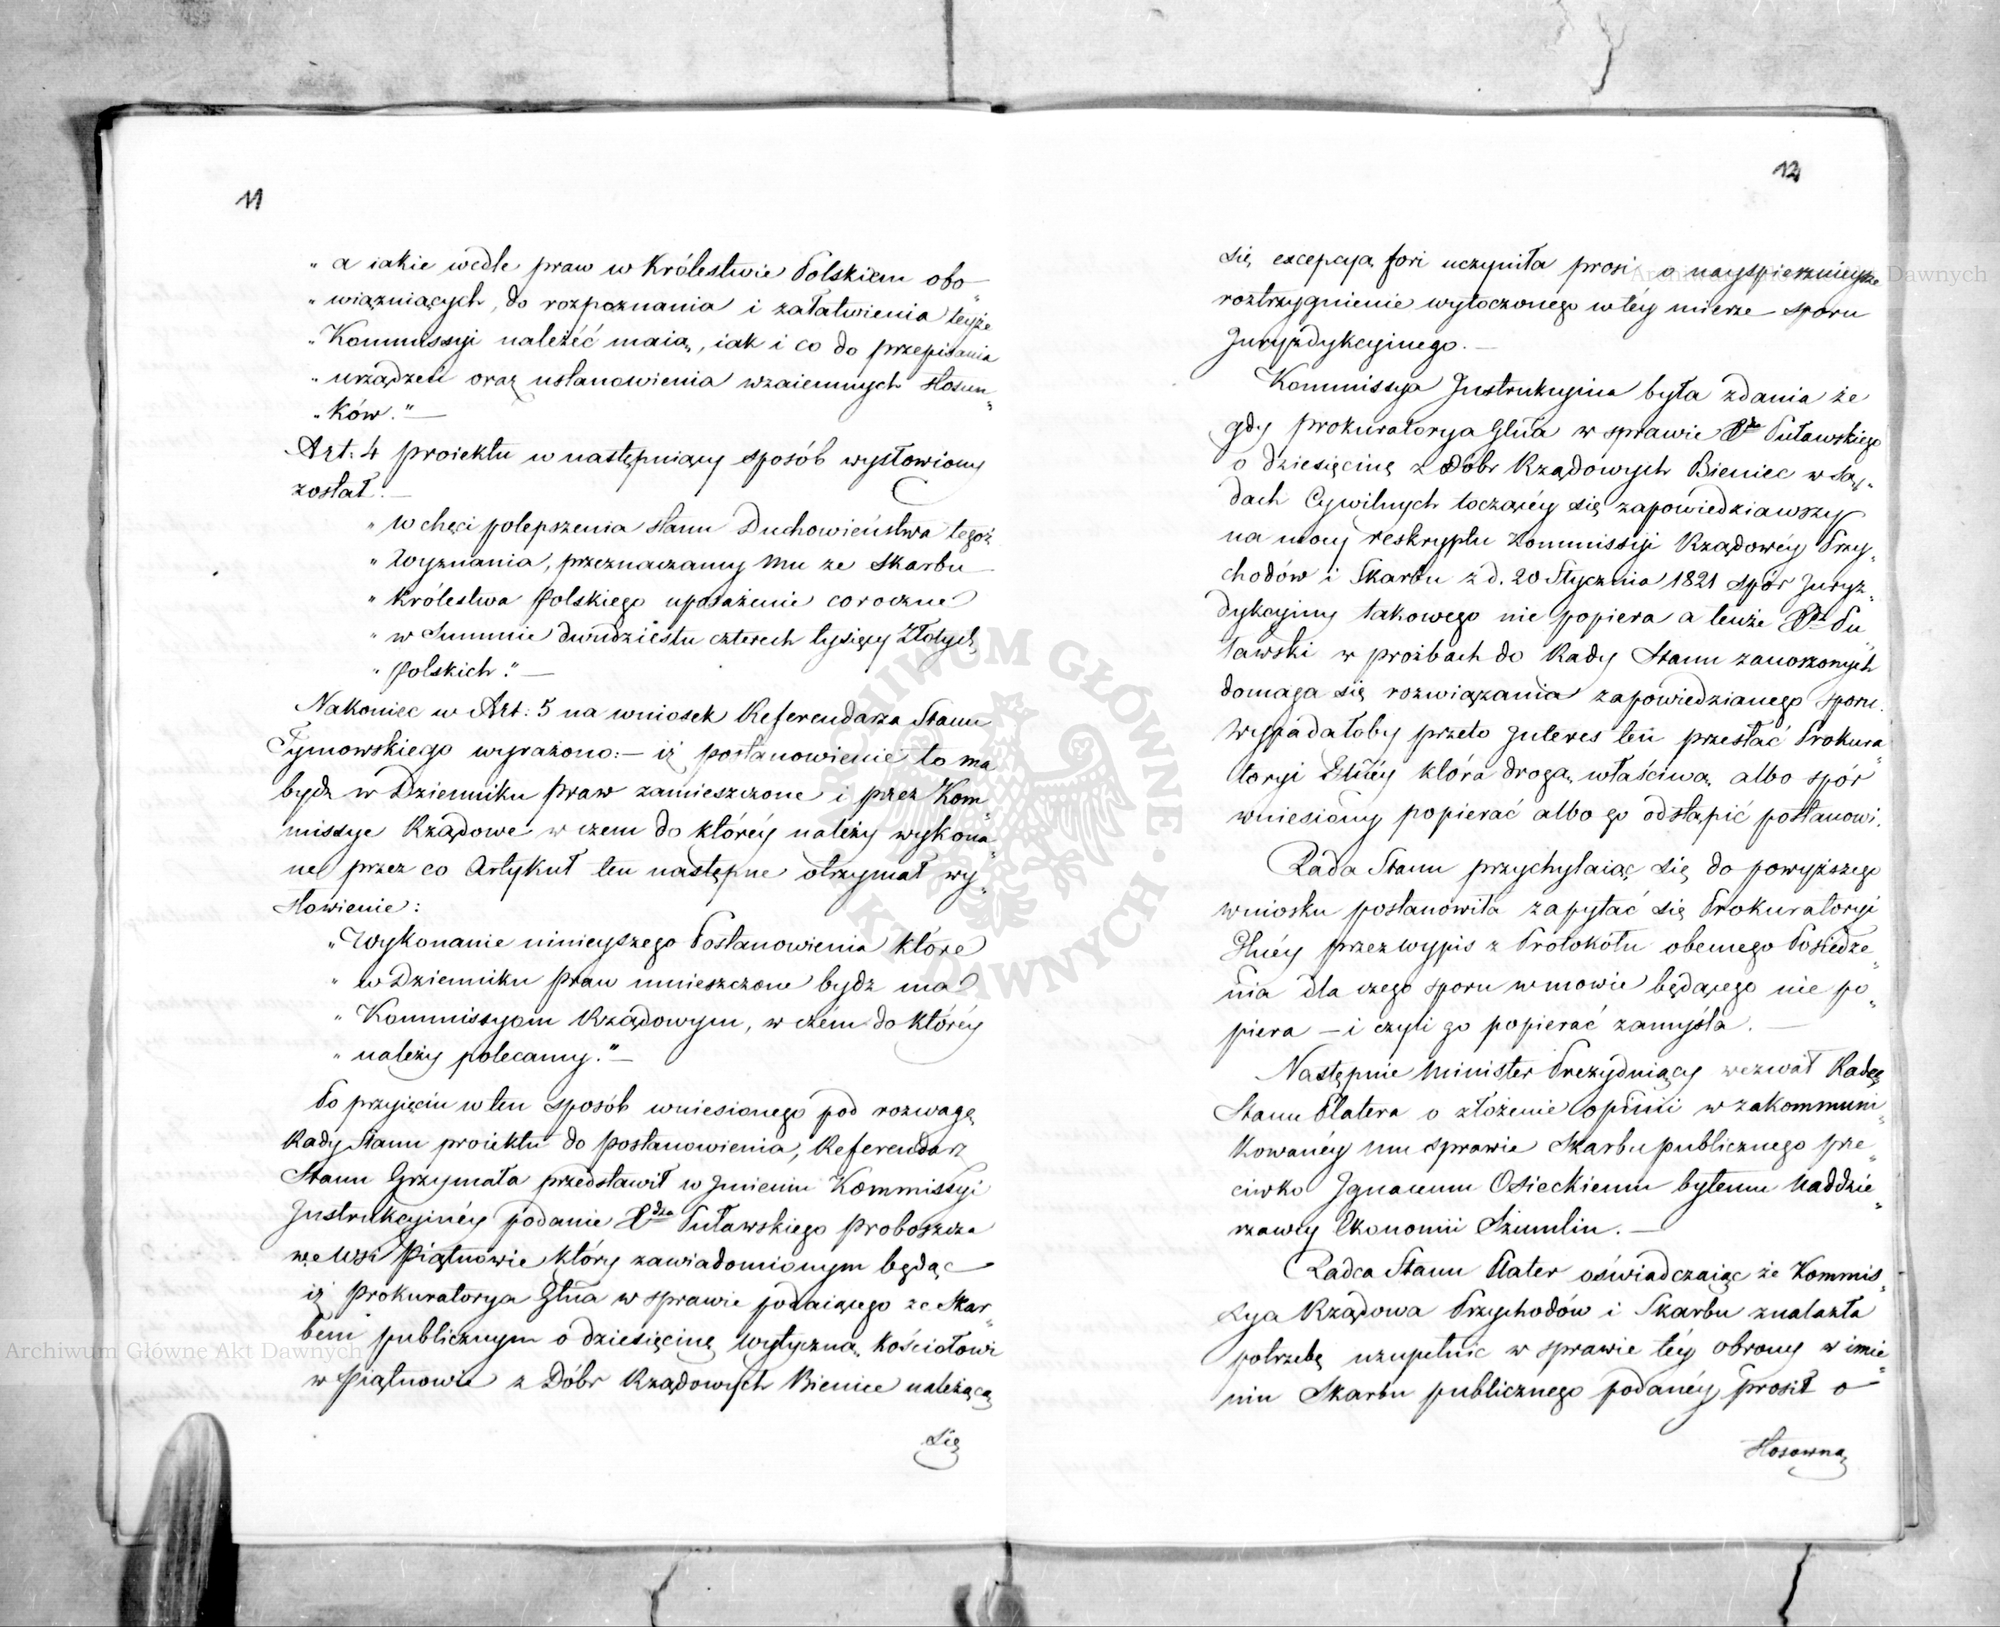 11
„ a iakie wedle praw w Królestwie Polskiem obo„
„ wiązuiących, do rozpoznania i załatwienia teyże
„ Kommissyi należéć maią, iak i co do przepisania
„ urządzeń oraz ustanowienia wzaiemnych stosun„
„ ków." —
Art: 4 proiektu w następuiący sposób wysłowiony
został: —
„ W chęci polepszenia stanu Duchowieństwa tegoż
„ Wyznania, przeznaczamy mu ze Skarbu
„ Królestwa Polskiego uposażenie coroczne
„ w Summie dwudziestu czterech tysięcy Złotych
„ Polskich." —
Nakoniec w Art: 5 na wniosek Referendarza Stanu
Tymowskiego wyrażono: — iż postanowienie to ma
bydz w Dzienniku Praw zamieszczone i przez Kom„
missye Rządowe w czem do któréy należy wykona„
ne przez co Artykuł ten następne otrzymał wy„
słowienie:
„ Wykonanie ninieyszego Postanowienia które
„ w Dzienniku Praw umieszczone bydz ma
„ Kommissyom Rządowym, w czém do któréy
„ należy polecamy." —
Po przyięciu w ten sposób wniesionego pod rozwagę
Rady Stanu proiektu do postanowienia, Referendarz
Stanu Grzymała przedstawił w Jmieniu Kommissyi
Jnstrukcyinéy podanie Xdza Puławskiego Proboszcza
we Wsi Piątnowie który zawiadomionym będąc
iż Prokuratorya Głna w sprawie podaiącego ze Skar„
bem publicznym o dziesięcinę wytyczną Kościołowi
w Piątnowie z Dóbr Rządowych Bieniec należącą
się
12
się excepcyą fori uczyniła prosi o nayspiesznieysze
roztrzygnienie wytoczonego w téy mierze sporu
Juryzdykcyinego. —
Kommissya Jnstrukcyina była zdania że
gdy Prokuratorya Głna w sprawie Xdza Puławskiego
o dziesięcinę z Dóbr Rządowych Bieniec w Są„
dach Cywilnych toczącéy się zapowiedziawszy
na mocy reskryptu Kommissyi Rządowéy Przy„
chodów i Skarbu z d. 20 Stycznia 1821 spór Juryz„
dykcyiny takowego nie popiera a tenże Xdz Pu„
ławski w prozbach do Rady Stanu zanoszonych
domaga się rozwiązania zapowiedzianego sporu.
Wypadałoby przeto Jnteres ten przesłać Prokura„
toryi Głnéy która drogą właściwą albo spór
wniesiony popierać albo go odstąpić postanowi.
Rada Stanu przychylaiąc się do powyższego
wniosku postanowiła zapytać się Prokuratoryi
Głnéy przez wypis z Protokółu obecnego Posiedze„
nia dla czego sporu w mowie będącego nie po„
piera — i czyli go popierać zamyśla. —
Następnie Minister Prezyduiący wezwał Radcę
Stanu Platera o złożenie opinii w zakommuni„
kowanéy mu sprawie Skarbu publicznego prze„
ciwko Jgnacemu Osieckiemu byłemu Naddzie„
rzawcy Ekonomii Szumlin. —
Radca Stanu Plater oświadczaiąc że Kommis„
sya Rządowa Przychodów i Skarbu znalazła
potrzebę uzupełnic w sprawie téy obrony w imie„
niu Skarbu publicznego podanéy, prosił o
stosowną
Archiwum Główne Akt Dawnych
Archiwum Główne Akt Dawnych
ARCHIWUM GŁÓWNE · AKT DAWNYCH ·